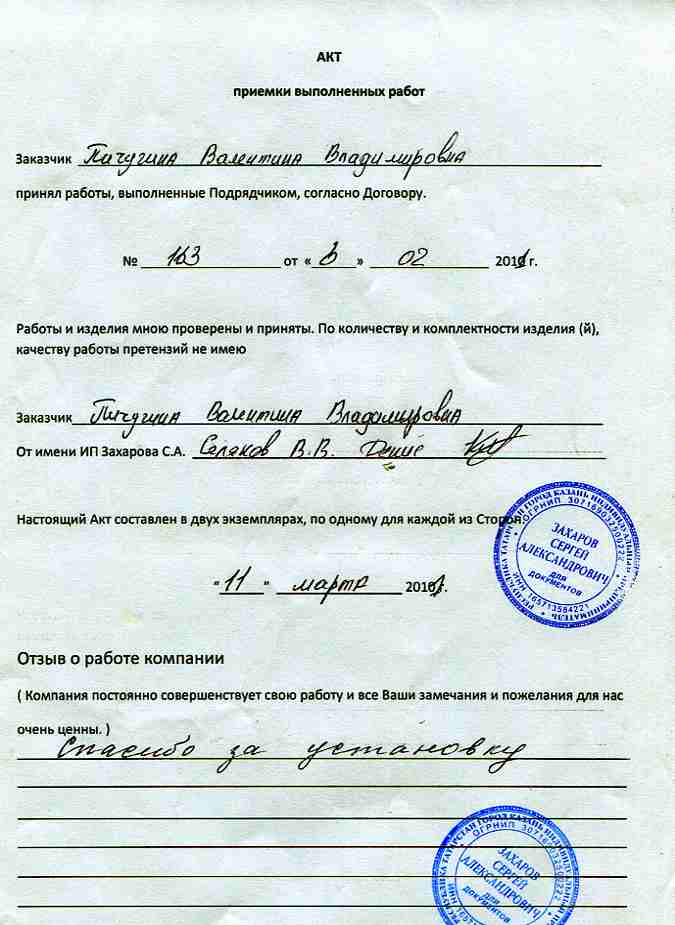 АКТ
приемки выполненных работ
Заказчик Пичугина Валентина Владимировна
принял работы, выполненные Подрядчиком, согласно Договору.
№ 163 от « 6 » 02 201 г.
Работы и изделия мною проверены и приняты. По количеству и комплектности изделия (й),
качеству работы претензий не имею
Заказчик Пичугина Валентина Владимировна
От имени ИП Захарова С.А. Селяков В.В.
Настоящий Акт составлен в двух экземплярах, по одному для каждой из Сторон.
РЕСПУБЛИКА ТАТАРСТАН ГОРОД КАЗАНЬ ИНДИВИДУАЛЬНЫЙ ПРЕДПРИНИМАТЕЛЬ
ОГРНИП
ЗАХАРОВ
СЕРГЕЙ
АЛЕКСАНДРОВИЧ
ДЛЯ
ДОКУМЕНТОВ
ИНН 165713584221
"11" марта 201 г.
Отзыв о работе компании
( Компания постоянно совершенствует свою работу и все Ваши замечания и пожелания для нас
очень ценны. )
Спасибо за установку
РЕСПУБЛИКА ТАТАРСТАН ГОРОД КАЗАНЬ
ОГРНИП
ЗАХАРОВ
СЕРГЕЙ
АЛЕКСАНДРОВИЧ
ДЛЯ
ДОКУМЕНТОВ